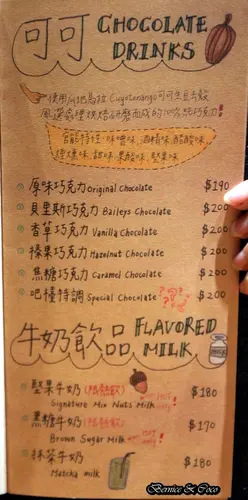 可可 CHOCOLATE DRINKS
使用瓜地馬拉 Cuyotenango可可生豆去殼
風選處理烘焙研磨而成的100%純巧克力!
原味巧克力 Original Chocolate $190
貝里斯巧克力 Baileys Chocolate $200
香草巧克力 Vanilla Chocolate $200
榛果巧克力 Hazelnut Chocolate $200
焦糖巧克力 Caramel Chocolate $200
吧檯特調 Special Chocolate ????
牛奶飲品 FLAVORED MILK
堅果牛奶 $180
Signature Mix Nuts Milk
黑糖牛奶 $170
Brown Sugar Milk
抹茶牛奶 $180
Matcha milk
Bernice & Coco